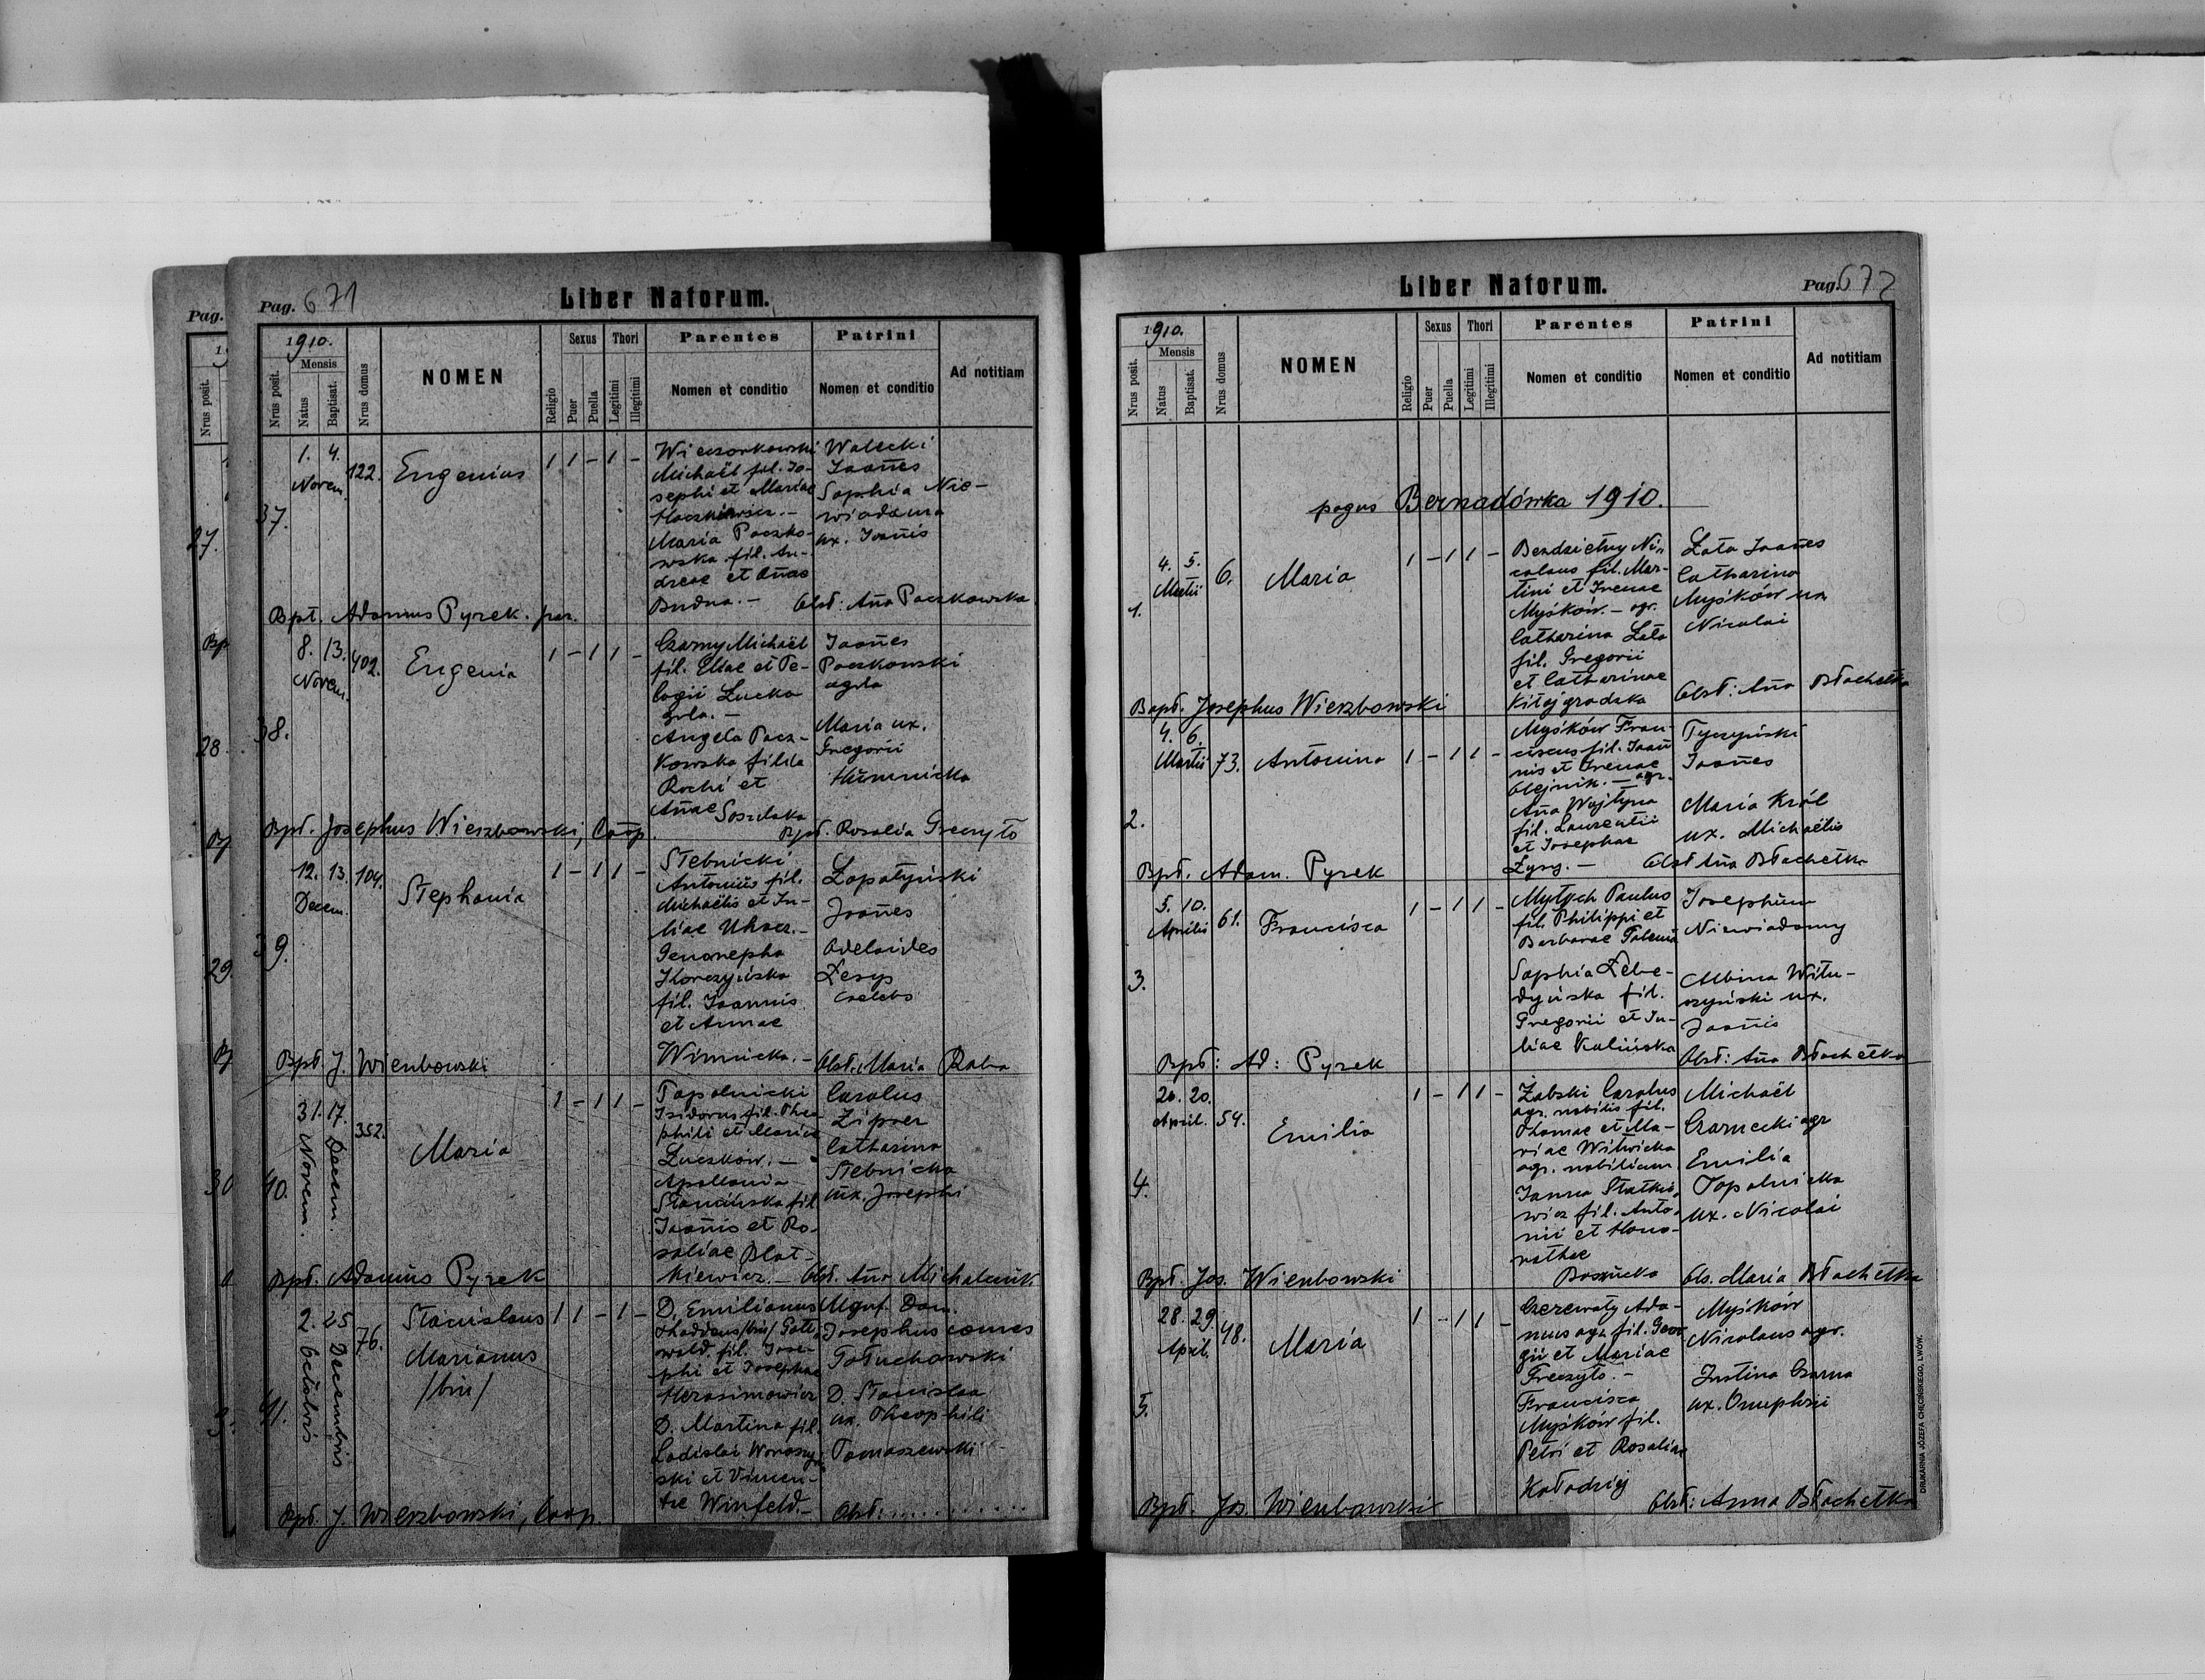 Pag. 671
Liber Natorum.
1910.
Nrus posit.
Mensis
Natus
Baptisat.
Nrus domus
NOMEN
Religio
Sexus
Puer
Puella
Thori
Legitimi
Illegitimi
Parentes
Nomen et conditio
Patrini
Nomen et conditio
Ad notitiam
37.
1. 4.
Novem.
122.
Eugenius
1 1 - 1 -
Wieczorkowski
Michaël fil. Jo-
sephi et Mariae
Maria Paczko-
wska fil. An-
dreae et Annae
Budna. -
Walecki
Joannes
Sophia Nie-
wiadoma
ux. Joannis
Obst: Anna Paczkowska
Bpt. Adamus Pyrek. par.
38.
8. 13.
Novem.
402.
Eugenia
1 - 1 1 -
Czarny Michaël
fil. Eliae et Pe-
lagii Lucka
Angela Pacz-
kowska filia
Rochi et
Annae Soszulska
Joannes
Paczkowski
Maria ux.
Gregorii
Humnicka
Bpt. Josephus Wierzbowski, Coop.
Bpt. Rosalia Greszyło
39.
12. 13.
Decem.
104.
Stephania
1 - 1 1 -
Stebnicki
Antonius fil.
Michaëlis et Ju-
liae Uhacz. -
Genovepha
Korczyńska
fil. Joannis
et Annae
Winnicka. -
Łopatyński
Joannes
Adelaides
Lesyp
caelebs
Obst. Maria Raba
Bpt J. Wierzbowski
40.
31. 17.
Novem. Decem.
352.
Maria
1 - 1 1 -
Topolnicki
Isidorus fil. Theo-
phili et Maria
Luczków. -
Apollonia
fil.
Joannis et Ro-
saliae Blat-
kiewicz. -
Carolus
Zipser
Catharina
Stebnicka
ux. Josephi
Obst. Anna Michalczuk
Bpt. Adamus Pyrek
41.
2. 25
Octobris Decembris
76.
Stanislaus
Marianus
/bin/
1 1 - 1 -
D. Emilianus
Thaddaeus /bin/ Gott-
wald. fil. Jose-
phi et Josephae
Herasimowicz
D. Martina fil.
Ladislai
ski et Vincen-
tae Winfeld. -
Mgnf. Dom.
Josephus comes
Gołuchowski
D. Stanislaa
ux. Theophili
Tomaszewski
Obst: ..........
Bpt. J. Wierzbowski, Coop.
Pag. 672
Liber Natorum.
1910.
Nrus posit.
Mensis
Natus
Baptisat.
Nrus domus
NOMEN
Religio
Sexus
Puer
Puella
Thori
Legitimi
Illegitimi
Parentes
Nomen et conditio
Patrini
Nomen et conditio
Ad notitiam
pagus Bernadówka 1910.
1.
4. 5.
Martii
6.
Maria
1 - 1 1 -
Bezdzietny Ni-
colaus fil. Mar-
tini et Irenae
Myśków. - agr.
Catharina Łata
fil. Gregorii
et Catharinae
Kitajgrodska
Łata Joannes
Catharina
Myśków ux
Nicolai
Obst: Anna Błachetka
Bapt. Josephus Wierzbowski
2.
4. 6.
Martii
73.
Antonina
1 - 1 1 -
Myśków Fran-
ciscus fil. Joan
nis et Irenae
Olejnik. - agr.
Anna Wojtyna
fil. Laurentii
et Josephae
Łysy. -
Tyczyński
Joannes
Maria Król
ux. Michaëlis
Obst Anna Błachetka
Bpt. Adam. Pyrek
3.
5. 10.
Aprilis
61.
Francisca
1 - 1 1 -
Mytych Paulus
fil. Philippi et
Barbarae
Sophia Lebe-
dyńska fil.
Gregorii et Ju-
liae Kalińska
Josephum
Niewiadomy
Albina Witu-
szyński ux.
Joannis
Obst: Anna Błachetka
Bpt: Ad: Pyrek
4.
20. 20.
April.
54.
Emilia
1 - 1 1 -
Żabski Carolus
agr. nobilis fil.
Thomae et Ma-
riae Witwicka
agr. nobilium
Janna Statkie-
wicz fil. Anto-
nii et Hono-
rathae
Michaël
Czarnecki agr
Emilia
Topolnicka
ux. Nicolai
Ob. Maria Błachetka
Bpt. Jos. Wierzbowski
5.
28. 29.
April.
48.
Maria
1 - 1 1 -
Czerewaty Ada-
mus agr. fil. Geor
gii et Mariae
Greszyło. -
Francisca
Myśków fil.
Petri et Rosaliae
Kołodziej
Myśków
Nicolaus agr.
Justina Czarna
ux. Onuphrii
Obst: Anna Błachetka
Bpt. Jos. Wierzbowski
DRUKARNIA JÓZEFA CHĘCIŃSKIEGO, LWÓW.
Pag.
Nrus posit.
27.
28
29.
30